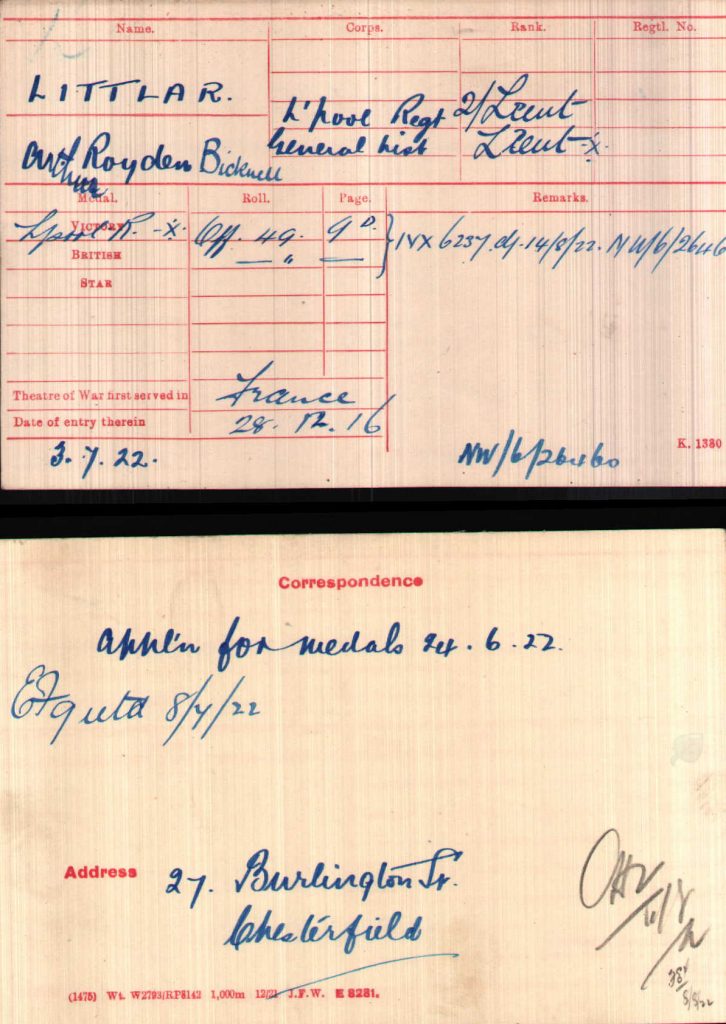 Name. Corps. Rank. Regtl. No.
LITTLAR.
L'pool Regt 2/Lieut
Arthur Royden Bicknell General List Lieut -x-
Medal. Roll. Page. Remarks.
VICTORY L'pool R. -x- Off. 49. 9 D. } IVX 6237 d/. 14/8/22. NW/6/2646
BRITISH — " —
STAR
Theatre of War first served in France
Date of entry therein 28. 12. 16
3. 7. 22. NW/6/26460
K. 1380
Correspondence
Appl'n for medals 24. 6. 22.
8/7/22
Address 27. Burlington St.
Chesterfield
(1475) Wt. W2793/RP8142 1,000m 12/21 J.F.W. E 8281.
8/8/22